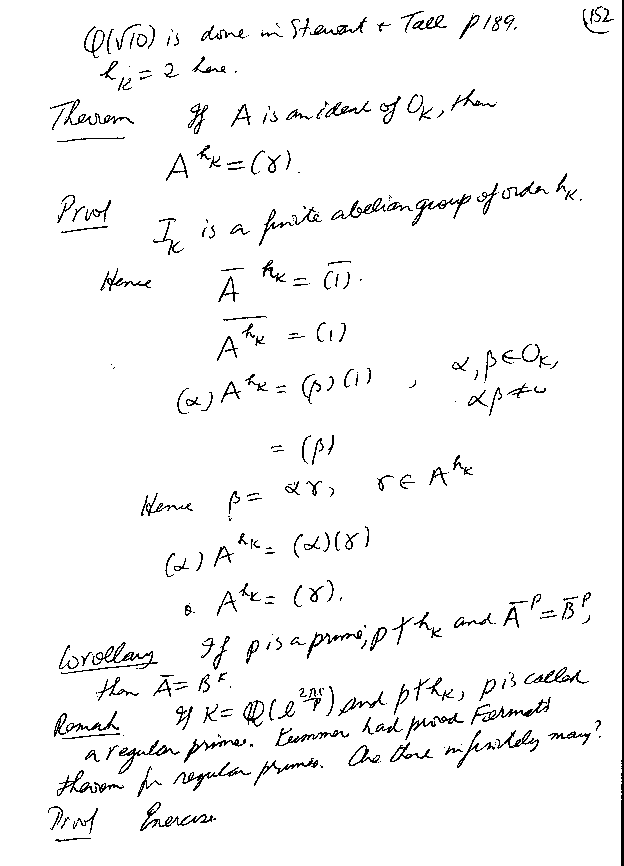 152
Q(√10) is done in Stewart + Tall p189.
h_K = 2 here.
Theorem If A is an ideal of O_K, then
A^{h_K} = (γ).
Proof I_K is a finite abelian group of order h_K.
Hence \overline{A}^{h_K} = \overline{(1)}.
\overline{A^{h_K}} = (1)
(α) A^{h_K} = (β)(1) , α, β ∈ O_K,
αβ ≠ 0
= (β)
Hence β = αγ, γ ∈ A^{h_K}
(α) A^{h_K} = (α)(γ)
A^{h_K} = (γ).
Corollary If p is a prime, p ∤ h_K and \overline{A}^p = \overline{B}^p,
then \overline{A} = \overline{B}.
Remark If K = Q(e^{2πi/p}) and p ∤ h_K, p is called
a regular prime. Kummer had proved Fermat's
theorem for regular primes. Are there infinitely many?
Proof Exercise